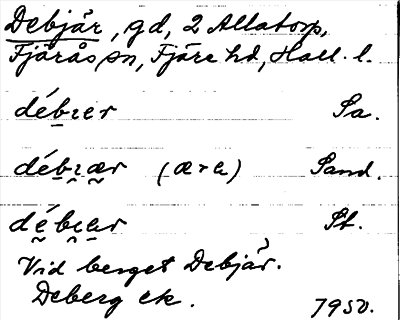 Debjär, gd, 2 Allatorp,
Fjärås sn, Fjäre hd, Hall. l.
débɪer Sa.
débɪær (æ > a) Sand.
débɪɐr St.
Vid berget Debjär.
Deberg ek. 1950.